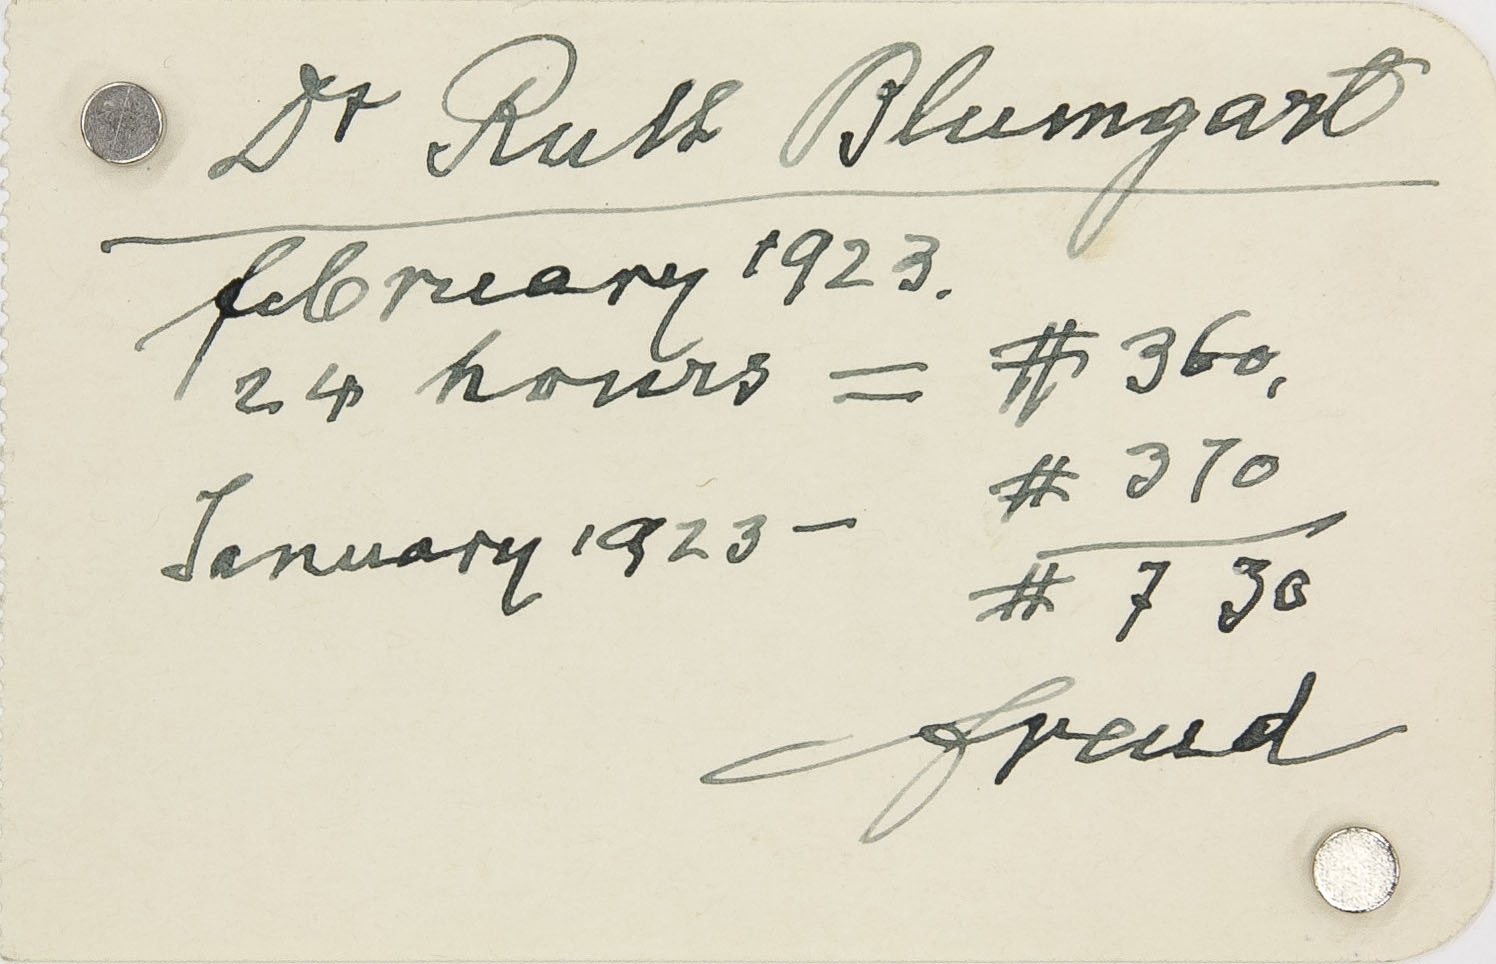 Dr Ruth Blumgart
february 1923.
24 hours = # 360,
# 370
January 1923 —
# 730
freud